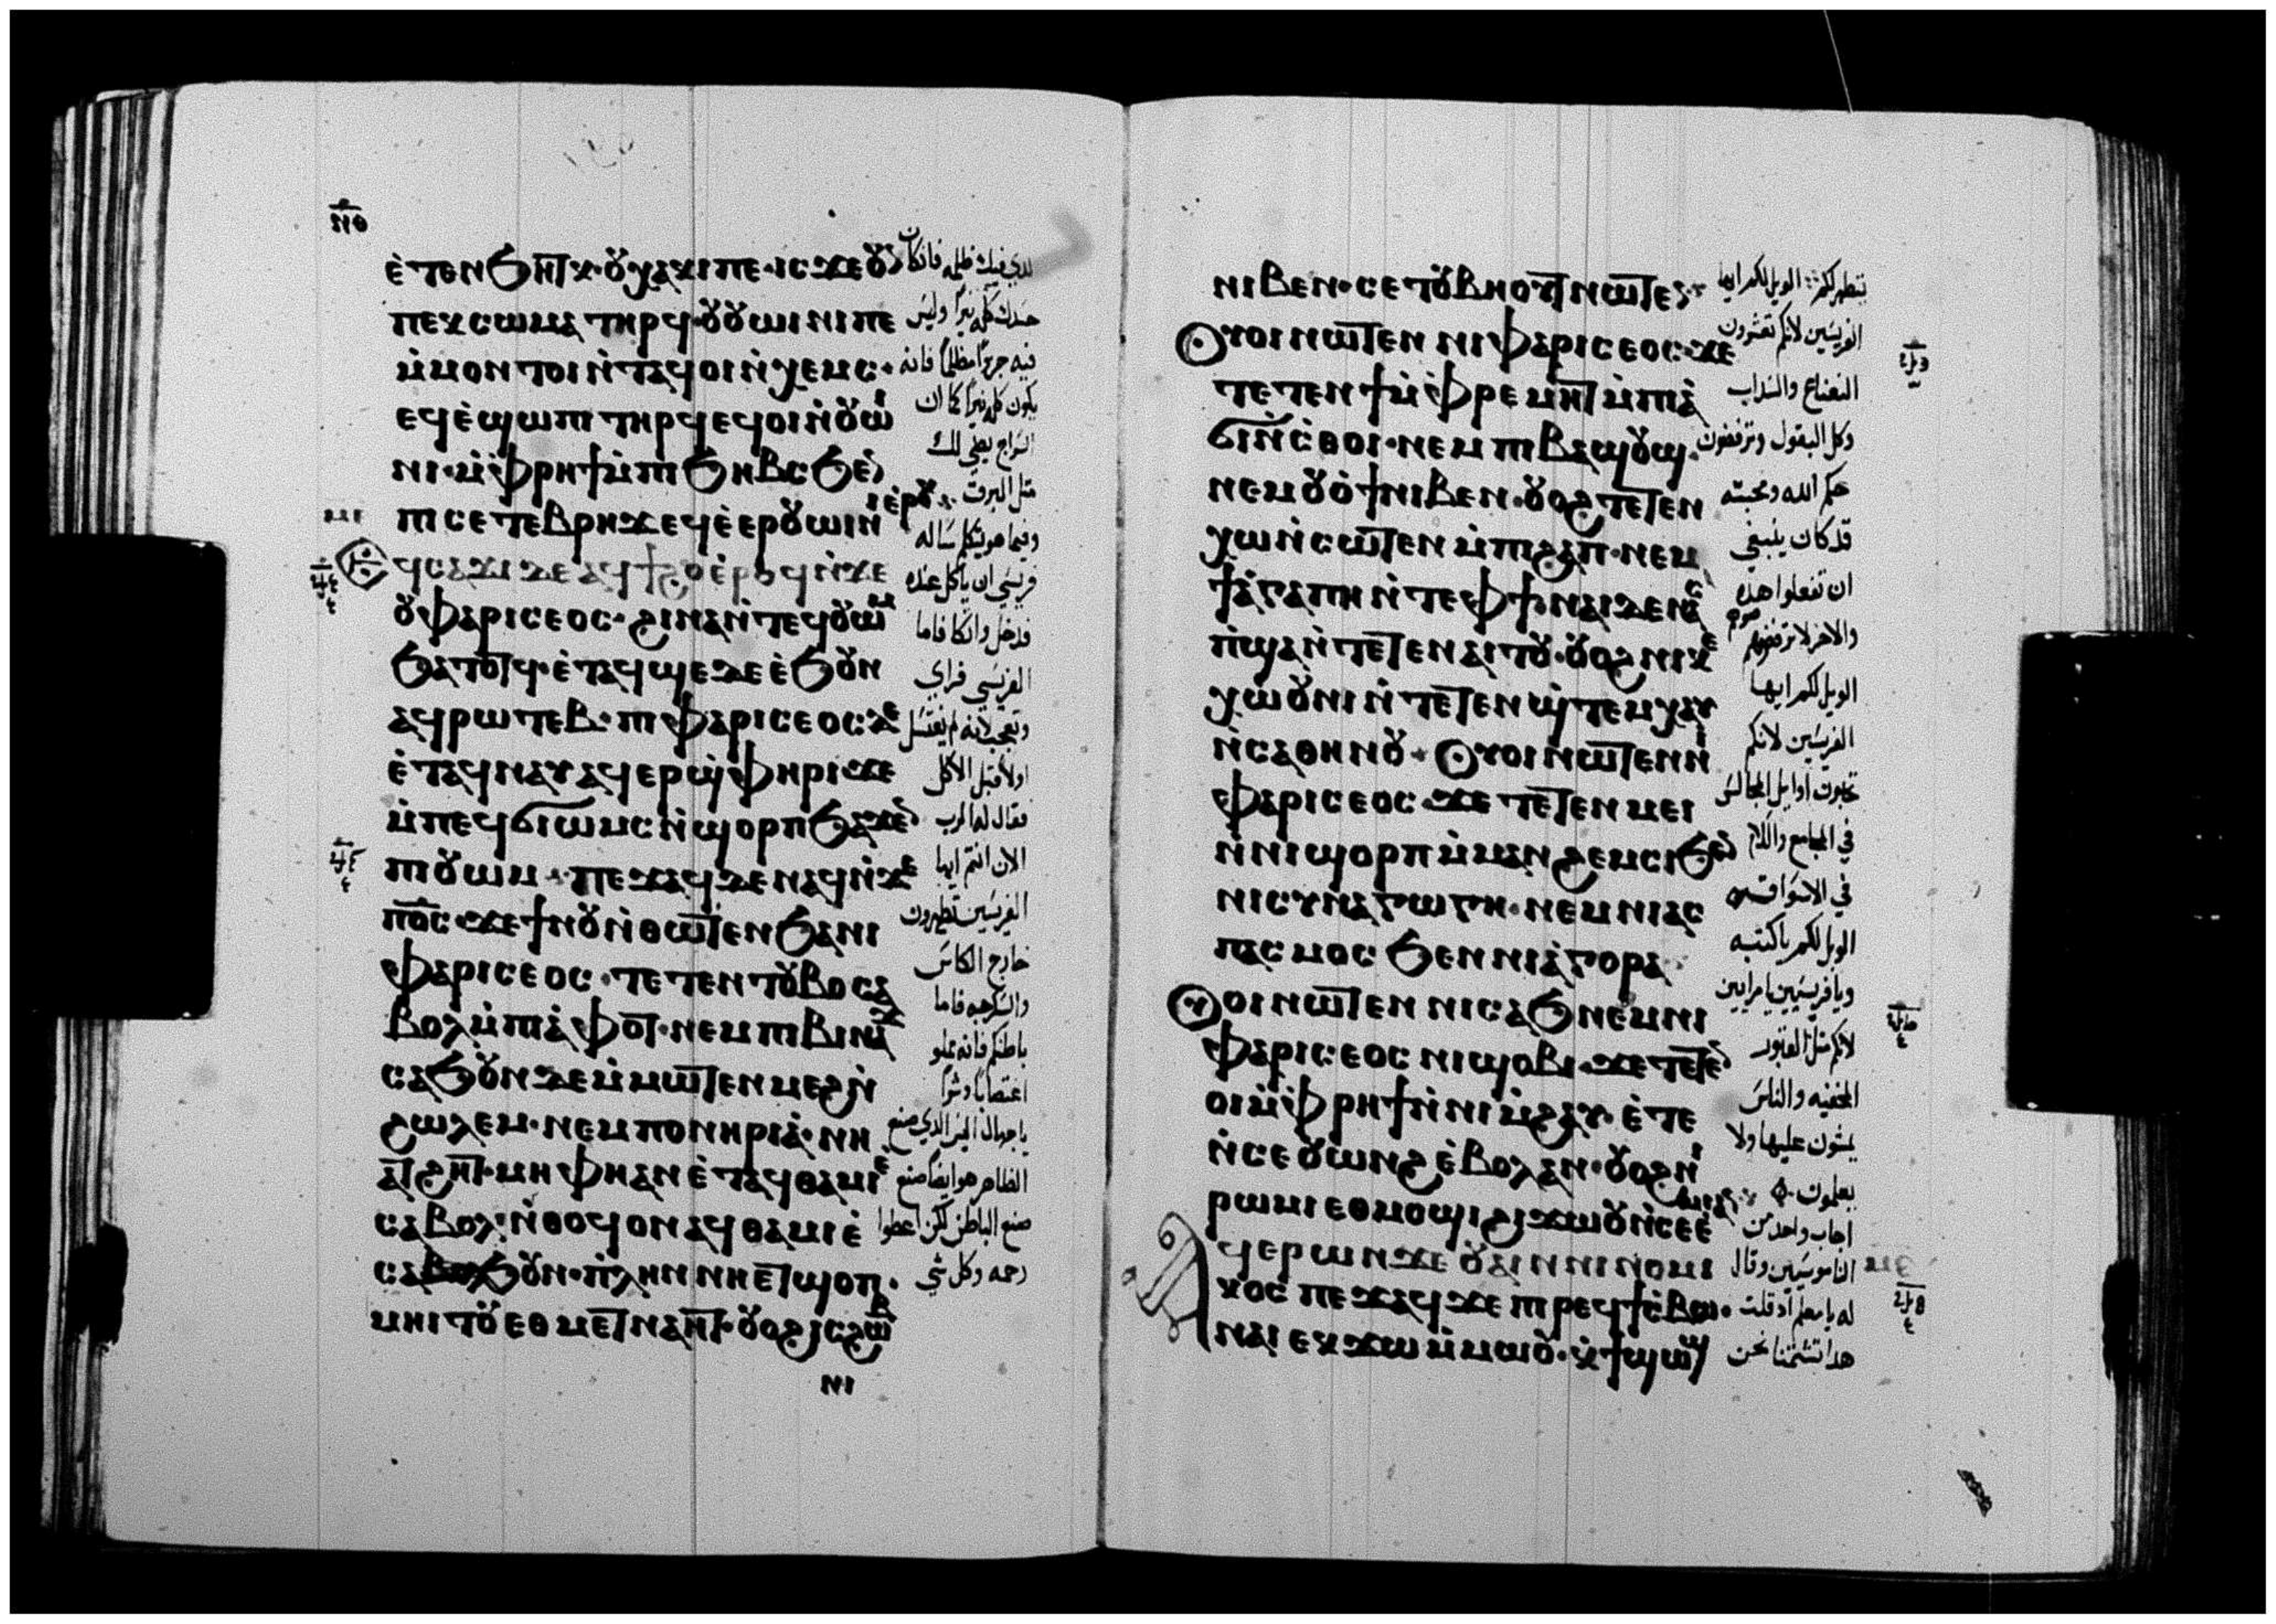 ⲥ̅ⲓ̅ⲑ̅
ⲉ̀ⲧⲉⲛϧⲏⲧⲕ·ⲟⲩⲭⲁⲕⲓⲡⲉ·ⲓⲥϫⲉⲟⲩ
ⲡⲉⲕⲥⲱⲙⲁ ⲧⲏⲣϥ·ⲟⲩⲟⲩⲱⲓⲛⲓⲡⲉ
ⲙ̀ⲙⲟⲛ ⲧⲟⲓ ⲛ̀ⲧⲁϥⲟⲓ ⲛ̀ⲭⲉⲙⲥ·
ⲉϥⲉ̀ϣⲱⲡⲓ ⲧⲏⲣϥ ⲉϥⲟⲓ ⲛ̀ⲟⲩⲱⲓ
ⲛⲓ·ⲙ̀ⲫⲣⲏϯ ⲙ̀ⲡⲓϧⲏⲃⲥ ϧⲉⲛ
ⲡⲓⲥⲉⲧⲉⲃⲣⲏϫ ⲉϥⲉ̀ⲉⲣⲟⲩⲱⲓⲛⲓ ⲉ̀ⲣⲟⲕ
ϥⲥⲁϫⲓ ⲇⲉ ⲁϥϯϩⲟ ⲉ̀ⲣⲟϥ ⲛ̀ϫⲉ
ⲟⲩⲫⲁⲣⲓⲥⲉⲟⲥ·ϩⲓⲛⲁ ⲛ̀ⲧⲉϥⲟⲩⲱⲙ
ϧⲁⲧⲟⲧϥ·ⲉ̀ⲧⲁϥϣⲉ ⲇⲉ ⲉ̀ϧⲟⲩⲛ
ⲁϥⲣⲱⲧⲉⲃ·ⲡⲓⲫⲁⲣⲓⲥⲉⲟⲥ ⲇⲉ
ⲉ̀ⲧⲁϥⲛⲁⲩ ⲁϥⲉⲣϣ̀ⲫⲏⲣⲓ ϫⲉ
ⲙ̀ⲡⲉϥϭⲓⲱⲙⲥ ⲛ̀ϣⲟⲣⲡ ϧⲁϫⲉⲛ
ⲡⲓⲟⲩⲱⲙ·ⲡⲉϫⲁϥ ⲇⲉ ⲛⲁϥ ⲛ̀ϫⲉ
ⲡⲟ̅ⲥ̅·ϫⲉ ϯⲛⲟⲩ ⲛ̀ⲑⲱⲧⲉⲛ ϧⲁ ⲛⲓ
ⲫⲁⲣⲓⲥⲉⲟⲥ·ⲧⲉⲧⲉⲛⲧⲟⲩⲃⲟ ⲥⲁ
ⲃⲟⲗ ⲙ̀ⲡⲓⲁ̀ⲫⲟⲧ·ⲛⲉⲙ ⲡⲓⲃⲓⲛⲁϫ
ⲥⲁϧⲟⲩⲛ ⲇⲉ ⲙ̀ⲙⲱⲧⲉⲛ ⲙⲉϩ ⲛ̀
ϩⲱⲗⲉⲙ·ⲛⲉⲙ ⲡⲟⲛⲏⲣⲓⲁ̀·ⲛⲓ
ⲁⲧϩⲏⲧ·ⲙⲏ ⲫⲏ ⲁⲛ ⲉ̀ⲧⲁϥⲑⲁⲙⲓⲉ̀
ⲥⲁⲃⲟⲗ·ⲛ̀ⲑⲟϥ ⲟⲛ ⲁϥⲑⲁⲙⲓⲉ̀
ⲥⲁϧⲟⲩⲛ·ⲡ̀ⲗⲏⲛ ⲛⲏ ⲉⲧϣⲟⲡ·
ⲙⲏⲓⲧⲟⲩ ⲉⲑⲙⲉⲧⲛⲁⲏⲧ·ⲟⲩⲟϩ ⲓⲥ ϩⲱⲃ
ⲛⲓ
الذي فيك ظلمه فان كان
جسدك كله نيراً وليس
فيه جزءاً مظلماً فانه
يكون كله نيراً كما ان
السراج يضي لك
مثل البرق
وفيما هو يتكلم ساله
فريسي ان ياكل عنده
فدخل واتكا فاما
الفريسي فراي
وتعجب لانه لم يغتسل
اولاً قبل الاكل
فقال له الرب
الان انتم ايها
الفريسين تطهرون
خارج الكاس
والسكرجه فاما
باطنكم فانه مملو
اغتصاباً وشراً
يا جهال اليس الذي صنع
الظاهر هو ايضاً صنع
صنع الباطن لكن اعطوا
رحمه وكل شي
ⲛⲓⲃⲉⲛ·ⲥⲉⲧⲟⲩⲃⲏⲟⲩⲧ ⲛⲱⲧⲉⲛ
ⲟⲩⲟⲓ ⲛⲱⲧⲉⲛ ⲛⲓⲫⲁⲣⲓⲥⲉⲟⲥ·ϫⲉ
ⲧⲉⲧⲉⲛϯ ⲙ̀ⲫⲣⲉⲙⲏⲧ ⲙ̀ⲡⲓⲁ̀
ϭⲓⲛⲥ̀ⲑⲟⲓ·ⲛⲉⲙ ⲡⲓⲃⲁϣⲟⲩϣ·
ⲛⲉⲙ ⲟⲩⲟ̀ϯ ⲛⲓⲃⲉⲛ·ⲟⲩⲟϩ ⲧⲉⲧⲉⲛ
ⲭⲱ ⲛ̀ⲥⲱⲧⲉⲛ ⲙ̀ⲡⲓϩⲁⲡ·ⲛⲉⲙ
ϯⲁ̀ⲅⲁⲡⲏ ⲛ̀ⲧⲉ ⲫϯ·ⲛⲁⲓ ⲇⲉ ⲛⲁⲥ
ⲙ̀ⲡ̀ϣⲁ ⲛ̀ⲧⲉⲧⲉⲛⲁⲓⲧⲟⲩ·ⲟⲩⲟϩ ⲛⲓⲕⲉ
ⲭⲱⲟⲩⲛⲓ ⲛ̀ⲧⲉⲧⲉⲛϣ̀ⲧⲉⲙⲭⲁⲩ
ⲛ̀ⲥⲁⲑⲏⲛⲟⲩ·ⲟⲩⲟⲓ ⲛⲱⲧⲉⲛ ⲛⲓ
ⲫⲁⲣⲓⲥⲉⲟⲥ·ϫⲉ ⲧⲉⲧⲉⲛⲙⲉⲓ
ⲛ̀ⲛⲓϣⲟⲣⲡ ⲙ̀ⲙⲁⲛϩⲉⲙⲥⲓ ϧⲉⲛ
ⲛⲓⲥⲩⲛⲁⲅⲱⲅⲏ·ⲛⲉⲙ ⲛⲓⲁⲥ
ⲡⲁⲥⲙⲟⲥ ϧⲉⲛ ⲛⲓⲁ̀ⲅⲟⲣⲁ
ⲟⲩⲟⲓ ⲛⲱⲧⲉⲛ ⲛⲓⲥⲁϧ ⲛⲉⲙ ⲛⲓ
ⲫⲁⲣⲓⲥⲉⲟⲥ ⲛⲓϣⲟⲃⲓ·ϫⲉ ⲧⲉⲧⲉⲛ
ⲟⲓ ⲙ̀ⲫⲣⲏϯ ⲛ̀ⲛⲓⲙ̀ϩⲁⲩ·ⲉ̀ⲧⲉ
ⲛ̀ⲥⲉⲟⲩⲱⲛϩ ⲉ̀ⲃⲟⲗ ⲁⲛ·ⲟⲩⲟϩ ⲛⲓ
ⲣⲱⲙⲓ ⲉⲑⲙⲟϣⲓ ϩⲓϫⲱⲟⲩ ⲛ̀ⲥⲉⲉ̀ⲙⲓ ⲁⲛ
ⲁϥⲉⲣⲟⲩⲱ ⲛϫⲉ ⲟⲩⲁⲓ ⲛⲛⲓⲛⲟⲙⲓ
ⲕⲟⲥ ⲡⲉϫⲁϥ ϫⲉ ⲡⲓⲣⲉϥϯⲥ̀ⲃⲱ·
ⲛⲁⲓ ⲉⲕϫⲱ ⲙ̀ⲙⲱⲟⲩ·ⲕ̀ϯϣⲱϣ
يتطهر لكم الويل لكم ايها
الفريسين لانكم تعشرون
النعناع والسداب
وكل البقول وترفضون
حكم الله ومحبته
قد كان ينبغي
ان تفعلوا هذه
والاخر لا ترفضوهم
الويل لكم ايها
الفريسين لانكم
تحبون اوايل المجالس
في المجامع والسلام
في الاسواق
الويل لكم ياكتبه
ويافريسيين يامرايين
لانكم مثل القبور
المخفيه والناس
يمشون عليها ولا
يعلمون
اجاب واحد من
الناموسيين وقال
له يا معلم اذ قلت
هذا تشتمنا نحن